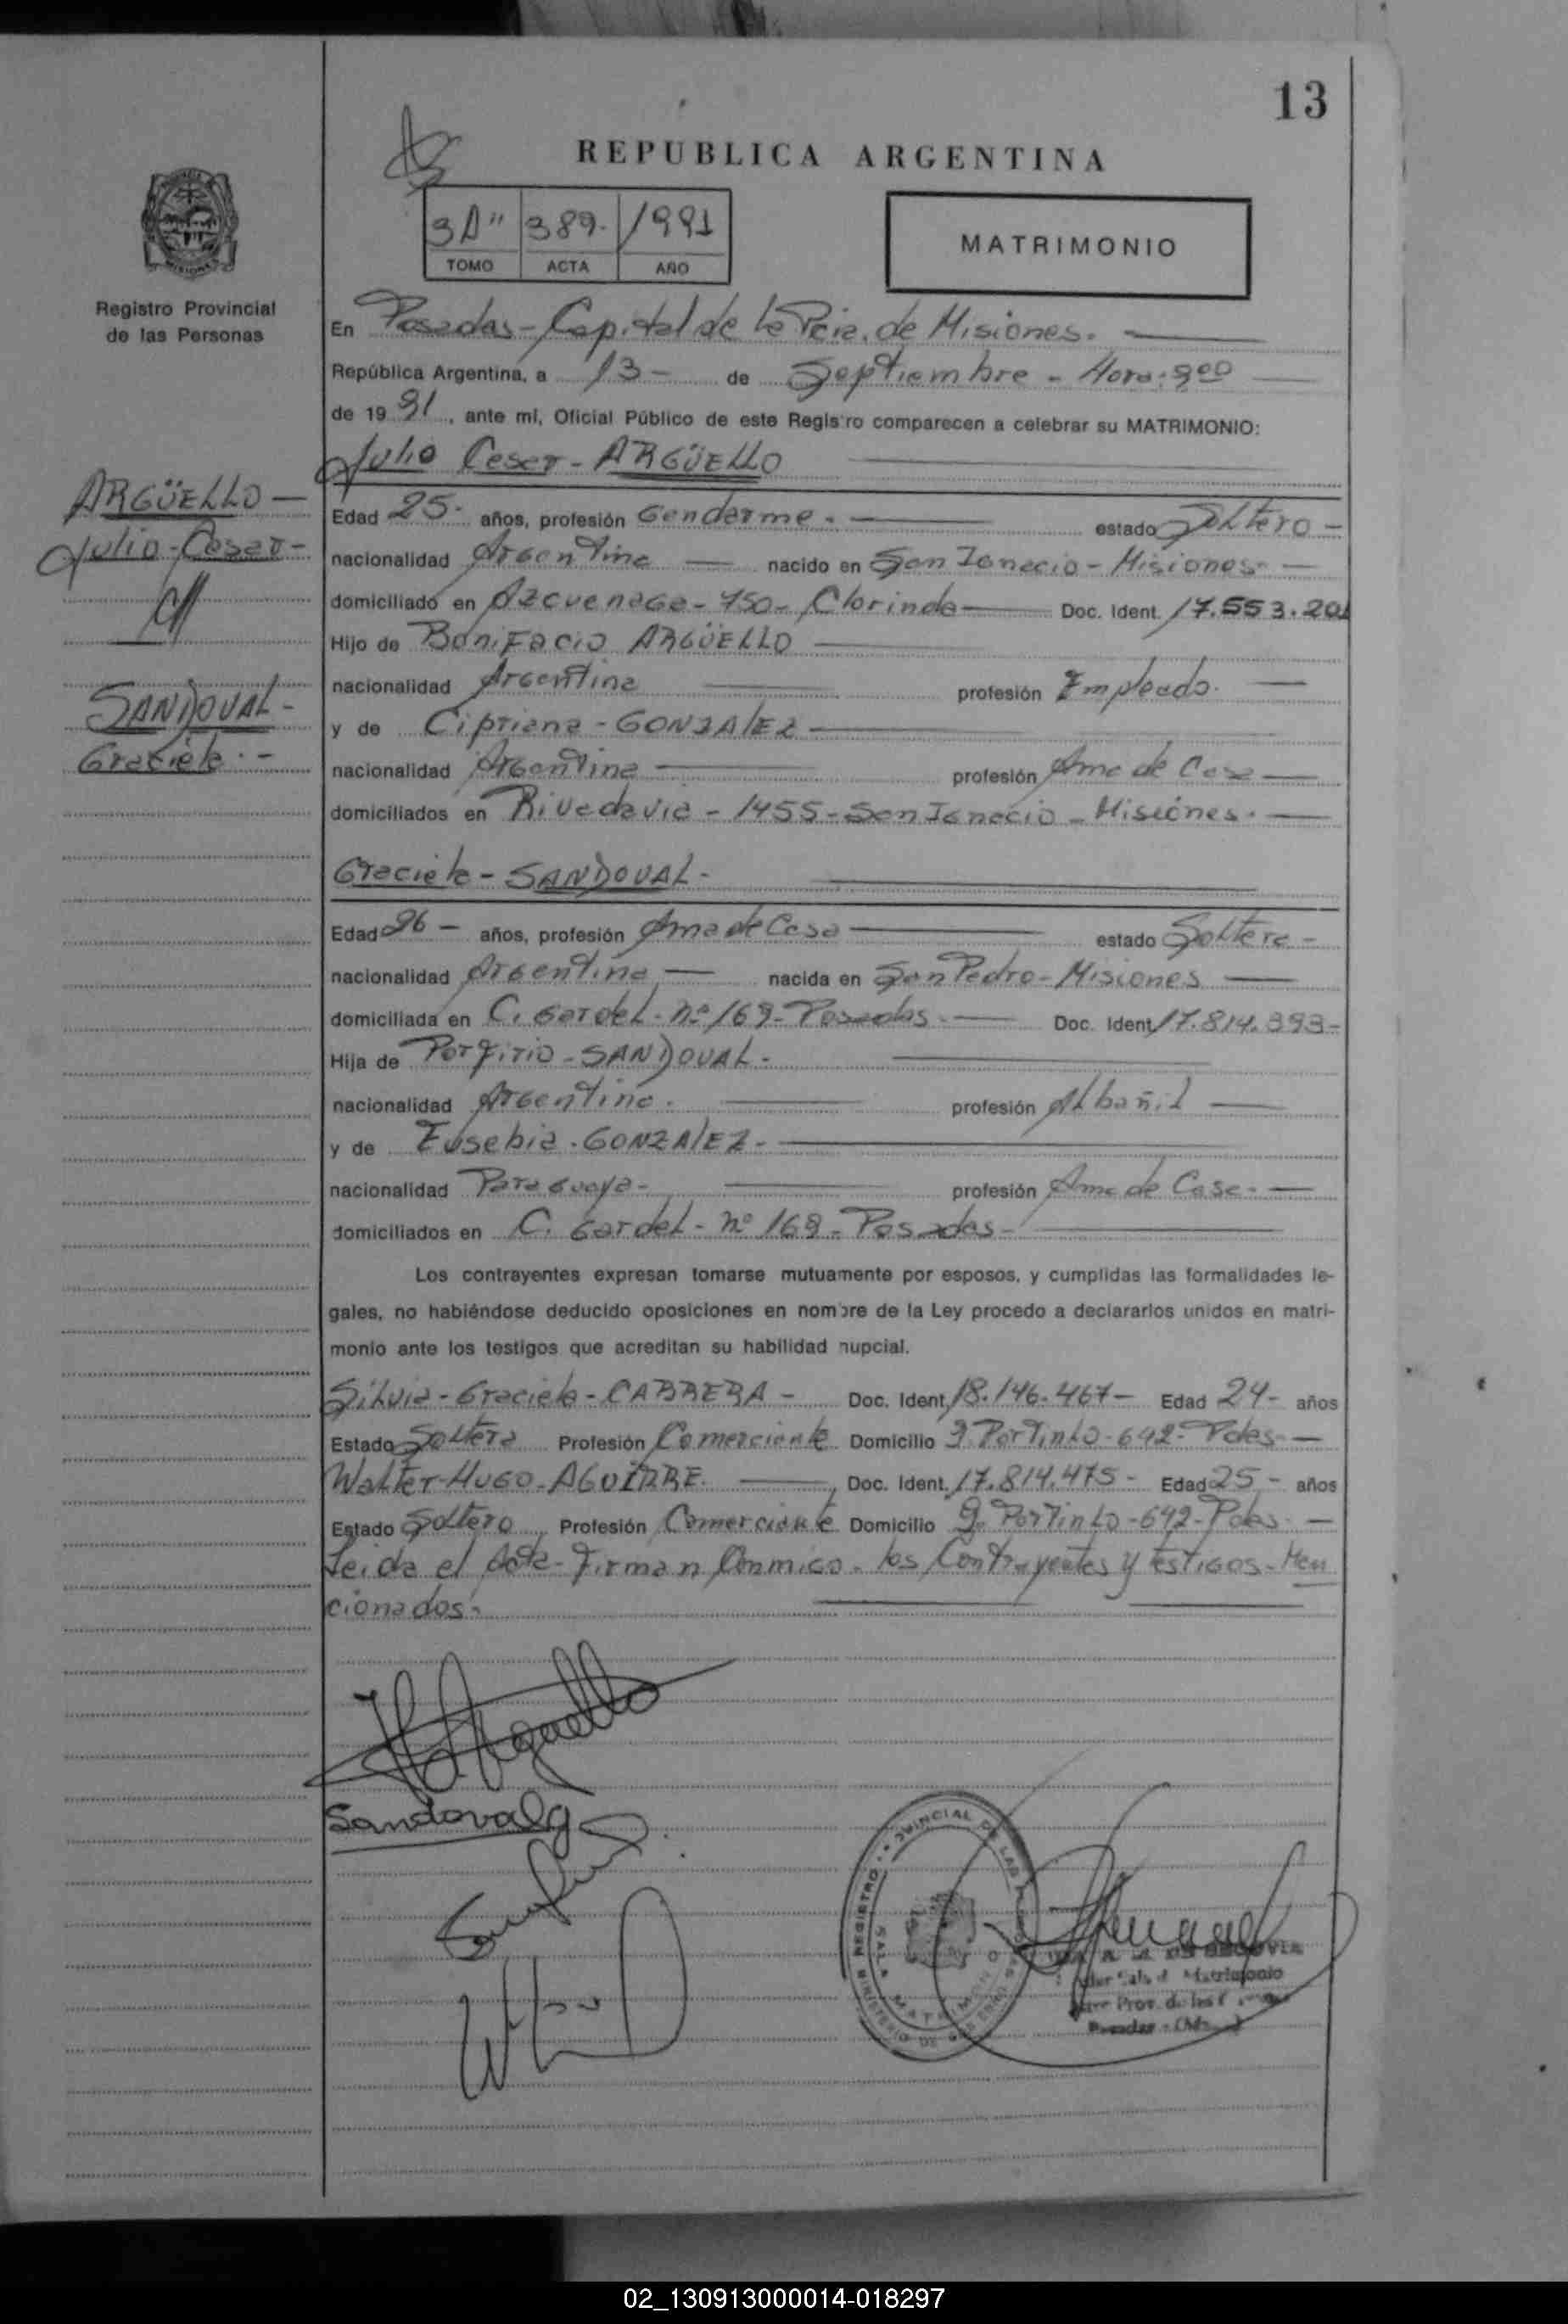 13
REPUBLICA ARGENTINA
3A" 389. 1991
TOMO ACTA AÑO
MATRIMONIO
Registro Provincial
de las Personas
En Posadas - Capital de la Pcia. de Misiones.
República Argentina, a 13 - de Septiembre - Hora: 9 00
de 19 91, ante mi, Oficial Público de este Registro comparecen a celebrar su MATRIMONIO:
Julio Cesar - ARGÜELLO
ARGÜELLO -
Julio - Cesar -
SANDOVAL -
Graciela . -
Edad 25 - años, profesión Gendarme - estado Soltero -
nacionalidad Argentina nacido en San Ignacio - Misiones -
domiciliado en Azcuenaga - 750 - Clorinda Doc. Ident. 17.553.201
Hijo de Bonifacio ARGÜELLO
nacionalidad Argentina profesión Empleado.
y de Cipriana - GONZALEZ
nacionalidad Argentina profesión Ama de Casa
domiciliados en Rivadavia - 1455 - San Ignacio - Misiones .
Graciela - SANDOVAL -
Edad 26 - años, profesión Ama de Casa estado Soltera -
nacionalidad Argentina nacida en San Pedro - Misiones
domiciliada en C. Gardel - nº 169 - Posadas - Doc. Ident 17.814.393 -
Hija de Porfirio - SANDOVAL -
nacionalidad Argentino . profesión Albañil
y de Eusebia . GONZALEZ -
nacionalidad Paraguaya - profesión Ama de Casa -
domiciliados en C. Gardel - nº 169 - Posadas -
Los contrayentes expresan tomarse mutuamente por esposos, y cumplidas las formalidades le-
gales, no habiéndose deducido oposiciones en nombre de la Ley procedo a declararlos unidos en matri-
monio ante los testigos que acreditan su habilidad nupcial.
Silvia - Graciela - CABRERA - Doc. Ident. 18.146.467 - Edad 24 - años
Estado Soltera Profesión Comerciante Domicilio J. Portinho - 642 - Pdas -
Walter - Hugo - AGUIRRE. Doc. Ident. 17.814.475 - Edad 25 - años
Estado Soltero Profesión Comerciante Domicilio J. Portinho - 642 - Pdas -
Leida el Acta - Firman Conmigo - los Contrayentes y testigos - Men
cionados -
Argüello
Sandoval g
REGISTRO PROVINCIAL DE LAS PERSONAS
SALA MATRIMONIO
MINISTERIO DE GOBIERNO
DE SEGOVIA
Sala d Matrimonio
Prov. de las
Posadas - (Mnes)
02_130913000014-018297